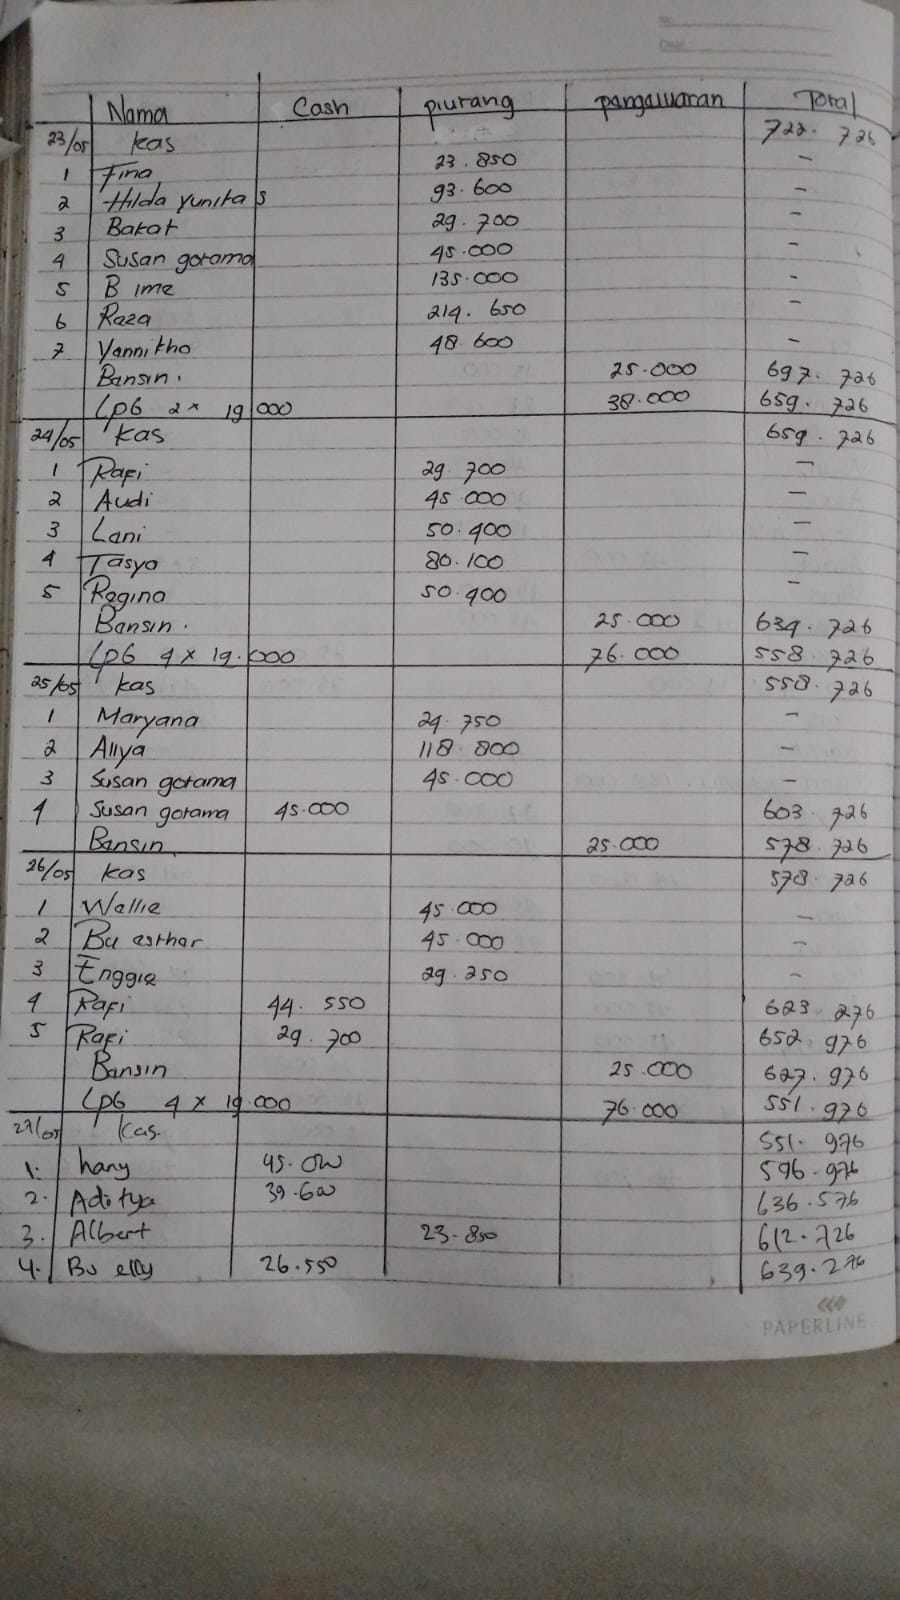 No.
Date:
Nama Cash piurang pangaluaran Total
23/05 kas 722.726
1 Fina 23.850 -
2 Hilda Yunitas 93.600 -
3 Bakat 29.700 -
4 Susan gotama 45.000 -
5 Bime 135.000 -
6 Raza 214.650 -
7 Yannitho 48.600 -
Bansin. 25.000 697.726
LPG 2 x 19 000 38.000 659.726
24/05 kas 659.726
1 Rafi 29.700 -
2 Audi 45.000 -
3 Lani 50.400 -
4 Tasya 80.100 -
5 Regina 50.400 -
Bansin. 25.000 634.726
LPG 4 x 19.000 76.000 558.726
25/05 kas 558.726
1 Maryana 24.750 -
2 Aliya 118.800 -
3 Susan gotama 45.000 -
4 Susan gotama 45.000 603.726
Bansin 25.000 578.726
26/05 kas 578.726
1 Wellie 45.000 -
2 Bu esthar 45.000 -
3 Enggie 29.250 -
4 Rafi 44.550 623.276
5 Rafi 29.700 652.976
Bansin 25.000 627.976
LPG 4 x 19.000 76.000 551.976
27/05 kas. 551.976
1. hany 45.000 596.976
2. Aditya 39.600 636.576
3. Albert 23.850 612.726
4. Bu elly 26.550 639.276
PAPERLINE